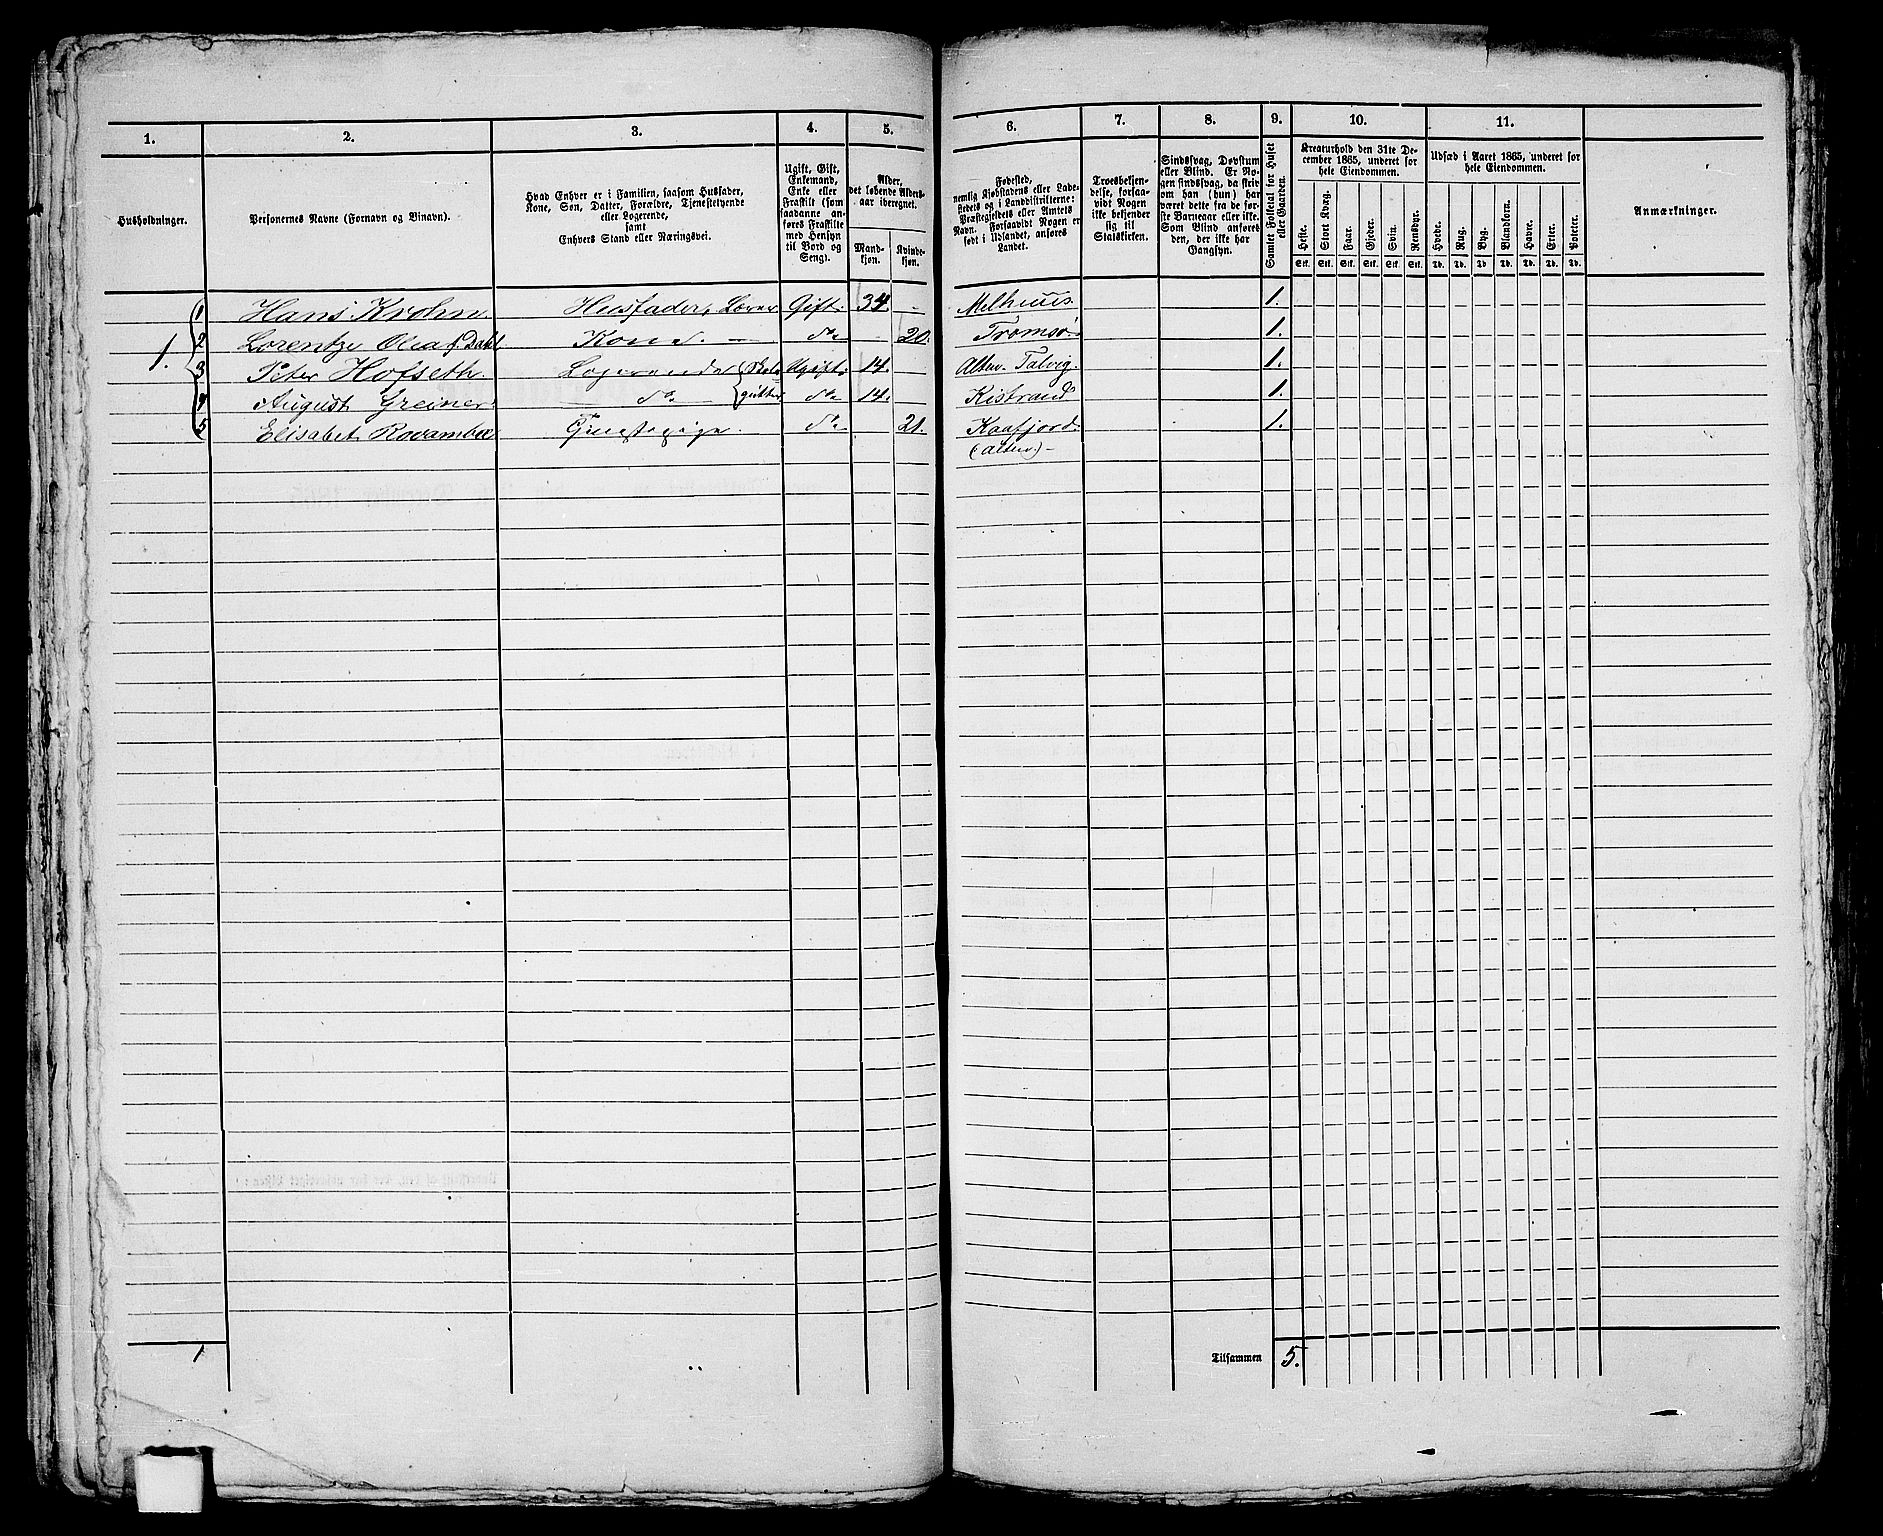 1. 2. 3. 4. 5. 6. 7. 8. 9. 10. 11.
Husholdninger.
Personernes Navne (Fornavn og Binavn).
Hvad Enhver er i Familien, saasom Husfader,
Kone, Søn, Datter, Forældre, Tjenestetyende
eller Logerende,
samt
Enhvers Stand eller Næringsvei.
Ugift, Gift,
Enkemand,
Enke eller
Fraskilt (som
saadanne an-
føres Fraskilte
med Hensyn
til Bord og
Seng).
Alder,
det løbende Alders-
aar iberegnet.
Mand-
kjøn.
Kvinde-
kjøn.
Fødested,
nemlig Kjøbstadens eller Lade-
stedets og i Landdistrikterne:
Præstegjeldets eller Amtets
Navn. Forsaavidt Nogen er
født i Udlandet, anføres
Landet.
Troesbekjen-
delse, forsaa-
vidt Nogen
ikke bekjender
sig til
Statskirken.
Sindssvag, Døvstum
eller Blind. Er No-
gen sindssvag, da skriv
om han (hun) har
været dette fra de før-
ste Barneaar eller ikke.
Som Blind anføret
den, der ikke har
Gangsyn.
Samlet Folketal for Huset
eller Gaarden.
Kreaturhold den 31te De-
cember 1865, underet for
hele Eiendommen.
Heste. Stort Kvæg. Faar. Gjeder. Svin. Rensdyr.
Stk. Stk. Stk. Stk. Stk. Stk.
Udsæd i Aaret 1865, underet for
hele Eiendommen.
Hvede. Rug. Byg. Blandkorn. Havre. Erter. Poteter.
Td. Td. Td. Td. Td. Td. Td.
Anmærkninger.
1 Hans Krohn Husfader, Lærer Gift. 34. - Melhuus 1.
1. 2 Lorentze Olea f. Dahl Kone do - 20. Tromsø 1.
3 Peter Hofseth. Logerende Skole Ugift. 14. Alten Talvig. 1.
4 August Greiner do gutter do 14. Kistrand 1.
5 Elisabet Rovambæ do 21. Kaafjord 1.
(Alten)
1
Tilsammen 5.